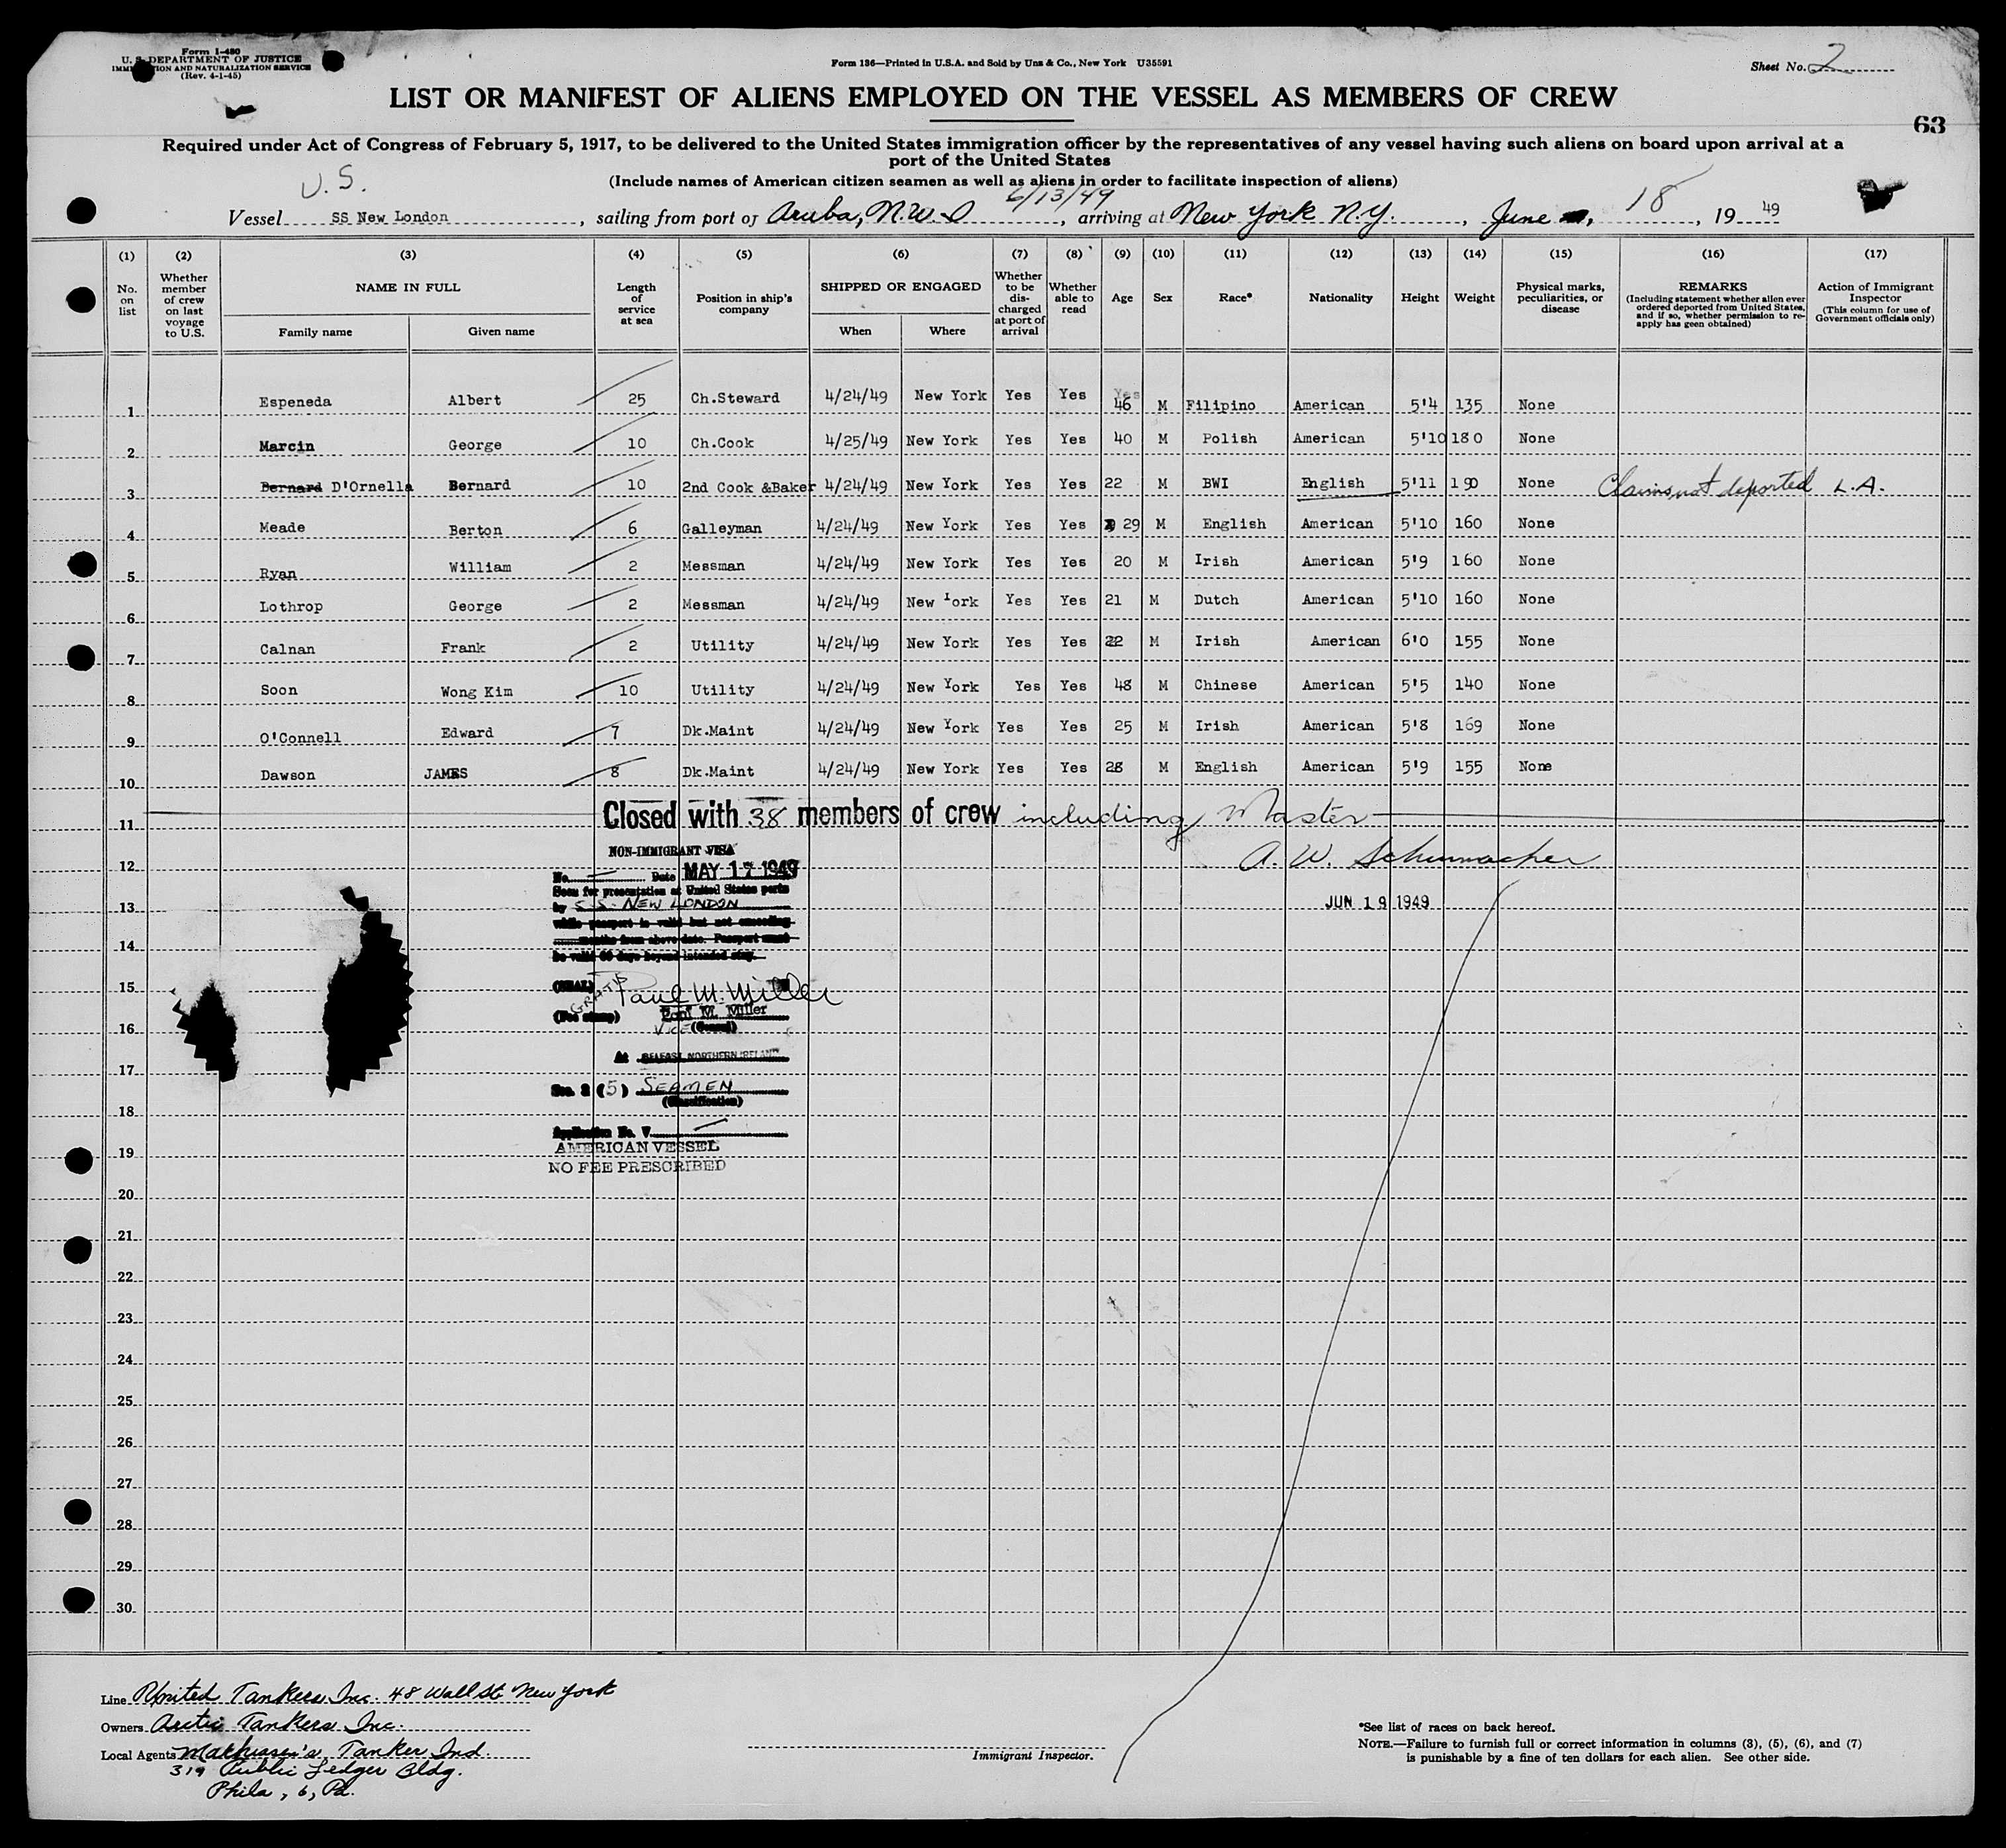 Form I-480
U. S. DEPARTMENT OF JUSTICE
IMMIGRATION AND NATURALIZATION SERVICE
(Rev. 4-1-45)
Form 136—Printed in U.S.A. and Sold by Unz & Co., New York U35591
Sheet No. 2
LIST OR MANIFEST OF ALIENS EMPLOYED ON THE VESSEL AS MEMBERS OF CREW
63
Required under Act of Congress of February 5, 1917, to be delivered to the United States immigration officer by the representatives of any vessel having such aliens on board upon arrival at a
port of the United States
(Include names of American citizen seamen as well as aliens in order to facilitate inspection of aliens)
U. S.
6/13/49
Vessel SS New London, sailing from port of Aruba, N.W.I, arriving at New York N.Y., June 18, 19 49
(1) (2) (3) (4) (5) (6) (7) (8) (9) (10) (11) (12) (13) (14) (15) (16) (17)
No. on list
Whether member of crew on last voyage to U.S.
NAME IN FULL
Family name Given name
Length of service at sea
Position in ship's company
SHIPPED OR ENGAGED
When Where
Whether to be discharged at port of arrival
Whether able to read
Age
Sex
Race*
Nationality
Height
Weight
Physical marks, peculiarities, or disease
REMARKS
(Including statement whether alien ever ordered deported from United States, and if so, whether permission to re-apply has geen obtained)
Action of Immigrant Inspector
(This column for use of Government officials only)
1 Espeneda Albert 25 Ch.Steward 4/24/49 New York Yes Yes 46 M Filipino American 5'4 135 None
2 Marcin George 10 Ch.Cook 4/25/49 New York Yes Yes 40 M Polish American 5'10 180 None
3 Bernard D'Ornella Bernard 10 2nd Cook &Baker 4/24/49 New York Yes Yes 22 M BWI English 5'11 190 None Claims not deported L.A.
4 Meade Berton 6 Galleyman 4/24/49 New York Yes Yes 29 M English American 5'10 160 None
5 Ryan William 2 Messman 4/24/49 New York Yes Yes 20 M Irish American 5'9 160 None
6 Lothrop George 2 Messman 4/24/49 New York Yes Yes 21 M Dutch American 5'10 160 None
7 Calnan Frank 2 Utility 4/24/49 New York Yes Yes 22 M Irish American 6'0 155 None
8 Soon Wong Kim 10 Utility 4/24/49 New York Yes Yes 48 M Chinese American 5'5 140 None
9 O'Connell Edward 7 Dk.Maint 4/24/49 New York Yes Yes 25 M Irish American 5'8 169 None
10 Dawson JAMES 8 Dk.Maint 4/24/49 New York Yes Yes 28 M English American 5'9 155 None
11 Closed with 38 members of crew including Master
NON-IMMIGRANT VISA
12 A. W. Schumacher
No. Date MAY 17 1949
Seen for presentation at United States ports
13 by S.S. NEW LONDON JUN 19 1949
while passport is valid but not exceeding
months from above date. Passport must
14
be valid 60 days beyond intended stay.
15 (SEAL) Paul M. Miller
GRATIS
(Fee stamp) Paul M. Miller
16 VICE (Consul)
At BELFAST, NORTHERN IRELAND
17
Sec. 3 (5) SEAMEN
(Classification)
18
Application No. V
19 AMERICAN VESSEL
NO FEE PRESCRIBED
20
21
22
23
24
25
26
27
28
29
30
Line United Tankers Inc. 48 Wall St New York
Owners Arctic Tankers Inc.
Local Agents Mathiasen's Tanker Ind.
319 Public Ledger Bldg.
Phila, 6, Pa.
Immigrant Inspector.
*See list of races on back hereof.
NOTE.—Failure to furnish full or correct information in columns (3), (5), (6), and (7)
is punishable by a fine of ten dollars for each alien. See other side.